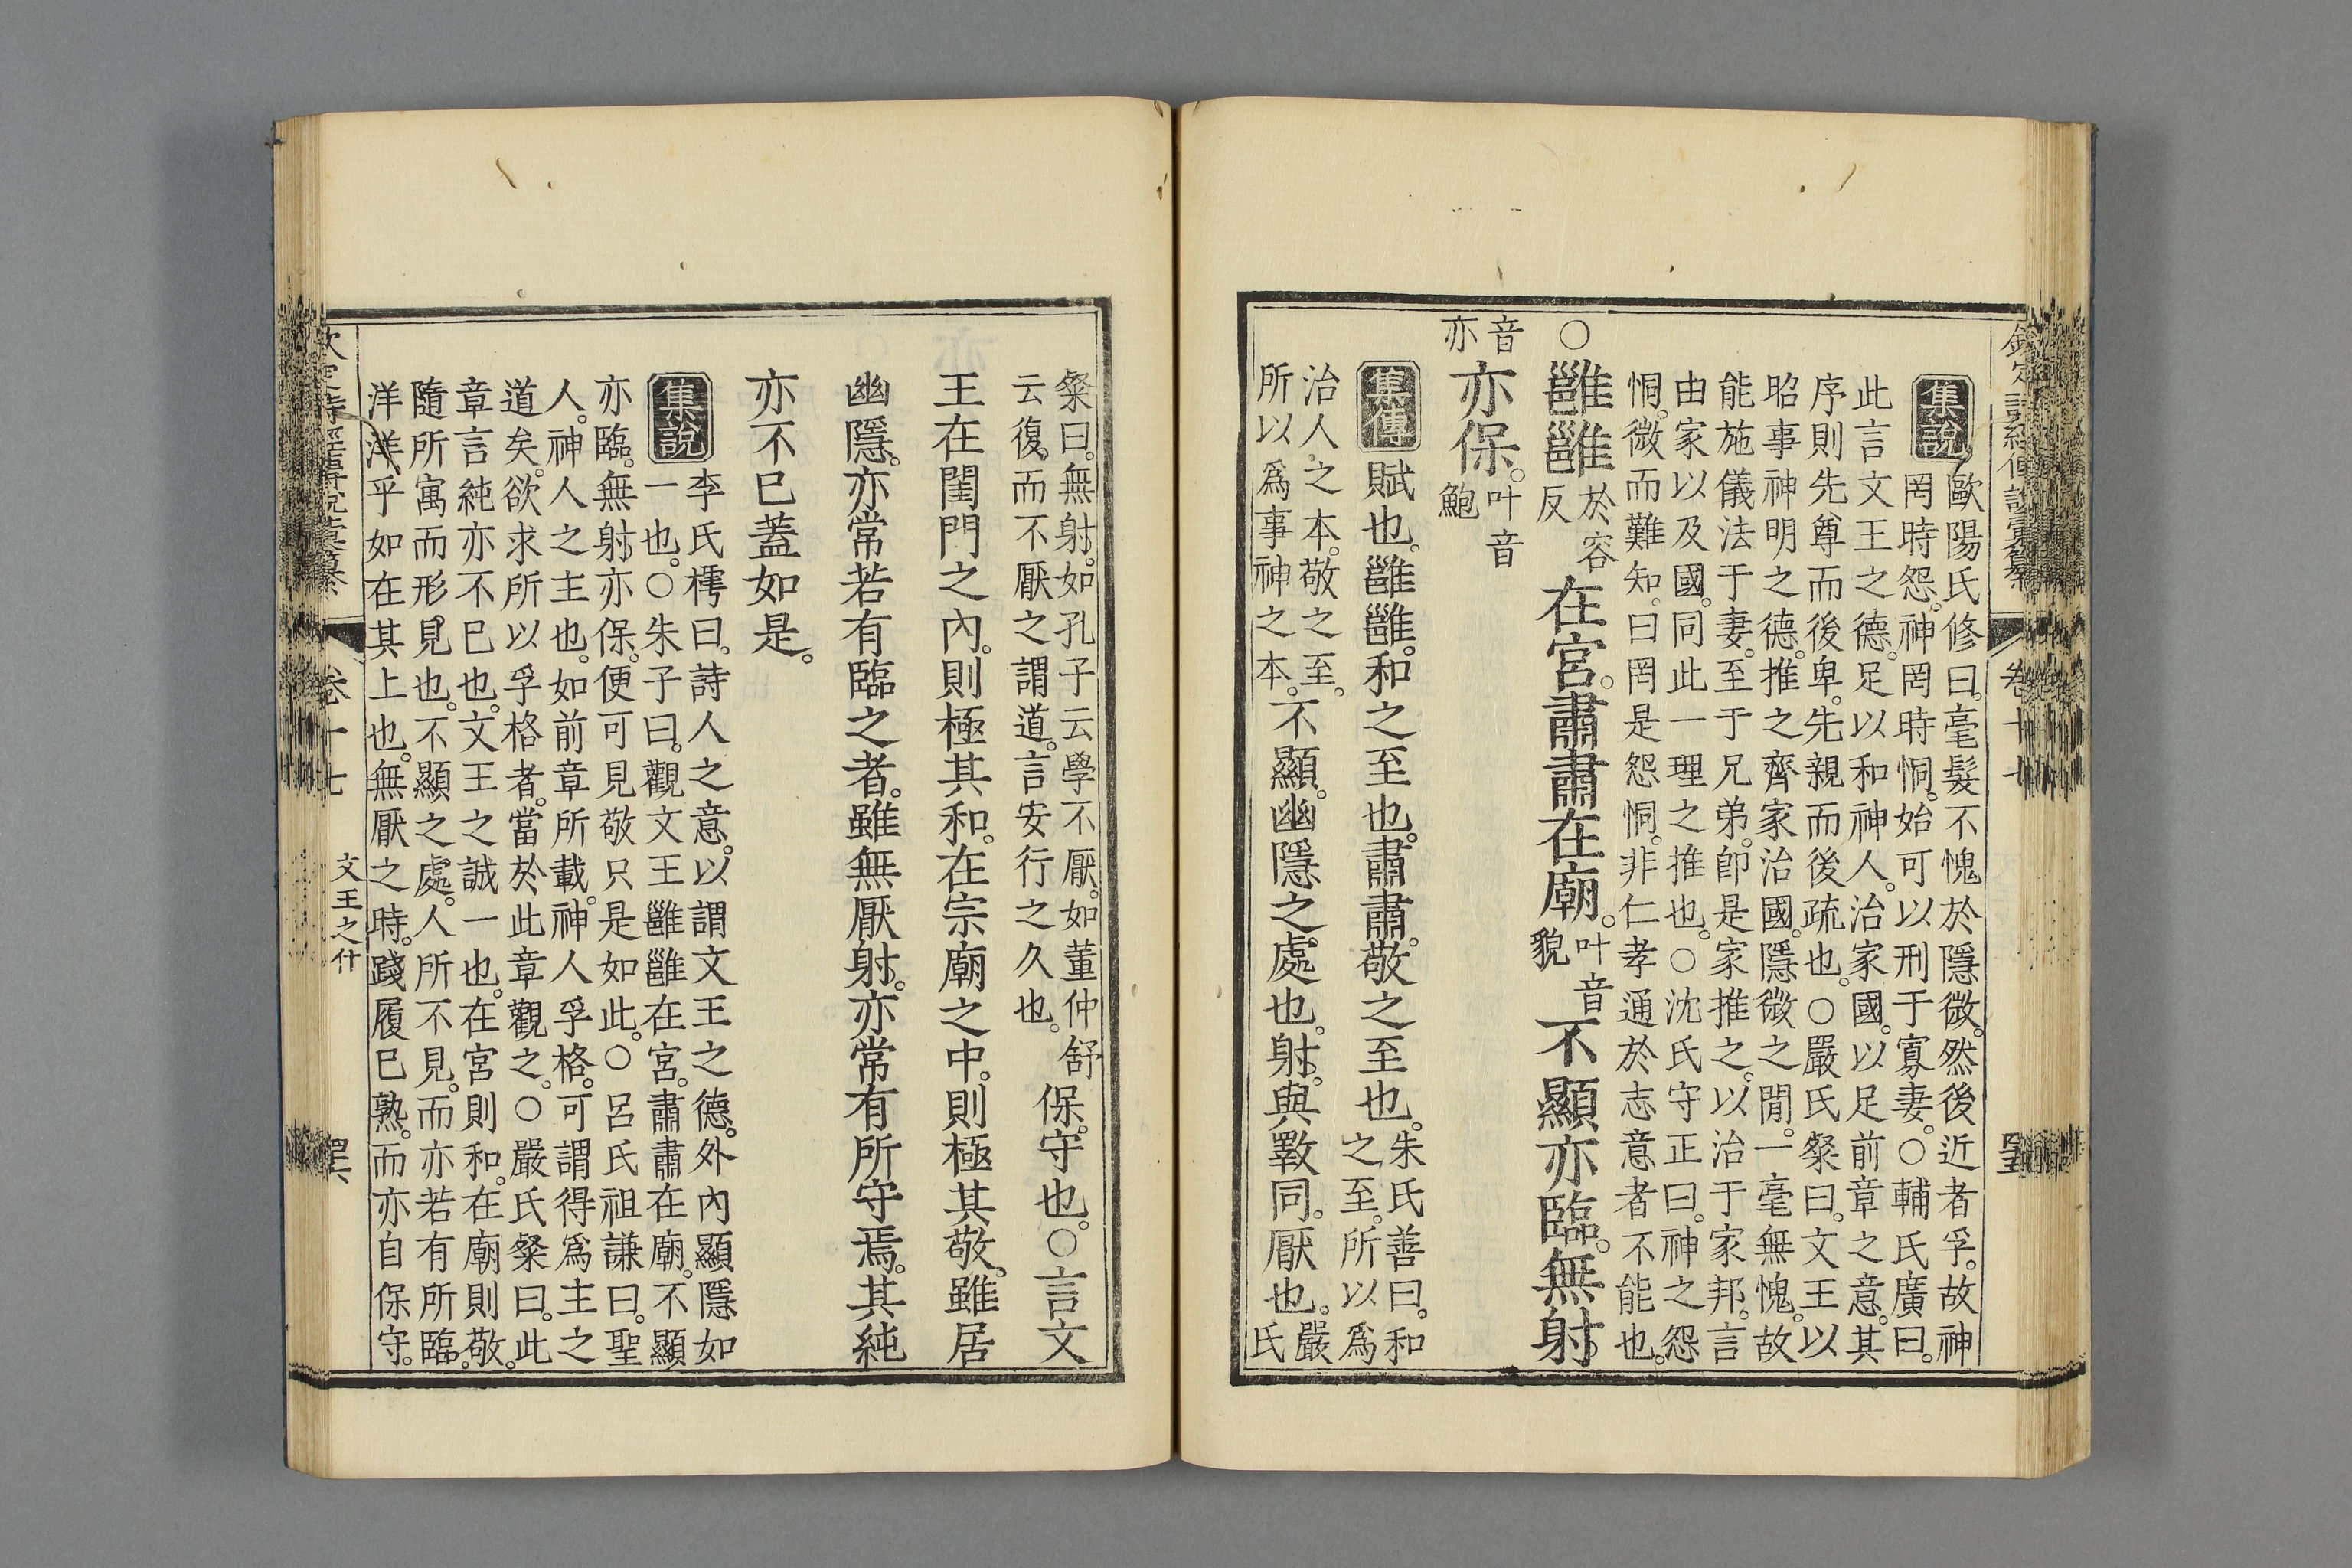 欽定詩經傳說彙纂 卷十七
集說 歐陽氏修曰。毫髮不愧於隱微。然後近者孚。故神
罔時怨。神罔時恫。始可以刑于寡妻。○輔氏廣曰。
此言文王之德。足以和神人。治家國。以足前章之意。其
序則先尊而後卑。先親而後疏也。○嚴氏粲曰。文王以
昭事神明之德。推之齊家治國。隱微之閒。一毫無愧。故
能施儀法于妻。至于兄弟。卽是家推之。以治于家邦。言
由家以及國。同此一理之推也。○沈氏守正曰。神之怨
恫。微而難知。曰罔是怨恫。非仁孝通於志意者不能也。
○雝雝於容反在宮。肅肅在廟。叶音貌不顯亦臨。無射
音亦亦保。叶音鮑
集傳 賦也。雝雝。和之至也。肅肅。敬之至也。朱氏善曰。和
之至。所以爲
治人之本。敬之至。
所以爲事神之本。不顯。幽隱之處也。射。與斁同。厭也。嚴
氏
粲曰。無射。如孔子云學不厭。如董仲舒
云復。而不厭之謂道。言安行之久也。保。守也。○言文
王在閨門之內。則極其和。在宗廟之中。則極其敬。雖居
幽隱。亦常若有臨之者。雖無厭射。亦常有所守焉。其純
亦不已蓋如是。
集說 李氏樗曰。詩人之意。以謂文王之德。外內顯隱如
一也。○朱子曰。觀文王雝雝在宮。肅肅在廟。不顯
亦臨。無射亦保。便可見敬只是如此。○呂氏祖謙曰。聖
人。神人之主也。如前章所載。神人孚格。可謂得爲主之
道矣。欲求所以孚格者。當於此章觀之。○嚴氏粲曰。此
章言純亦不已也。文王之誠一也。在宮則和。在廟則敬。
隨所寓而形見也。不顯之處。人所不見。而亦若有所臨。
洋洋乎如在其上也。無厭之時。踐履已熟。而亦自保守。
欽定詩經傳說彙纂 卷十七 文王之什